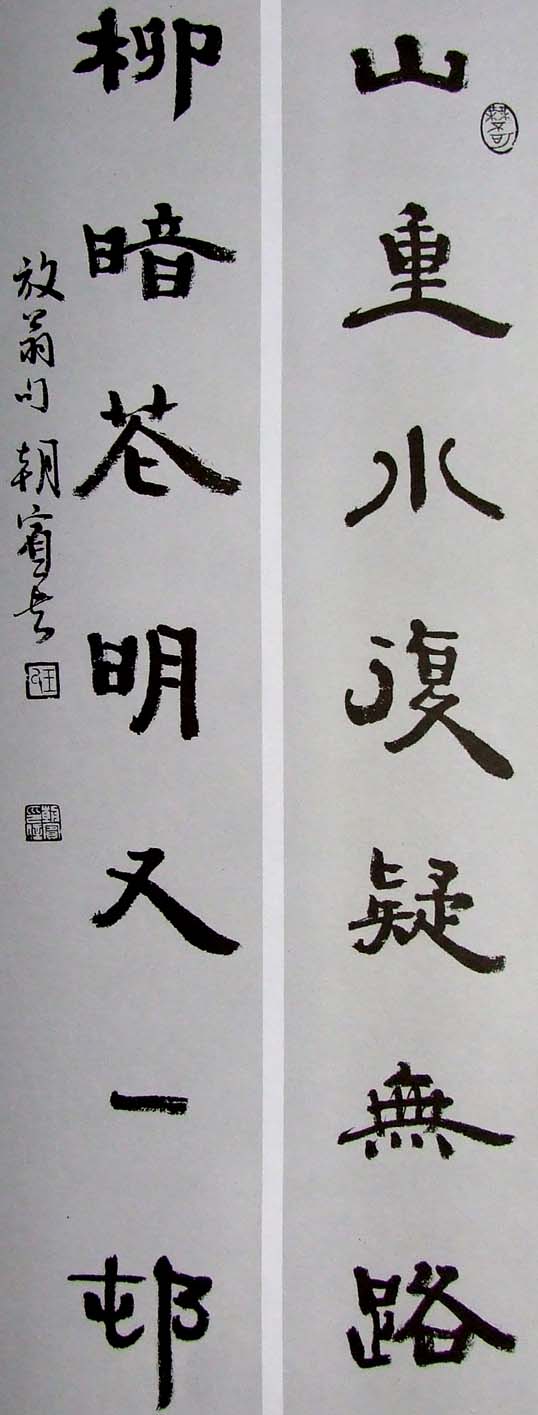 山重水復疑無路
柳暗苍明又一邨
放翁句 朝賓書